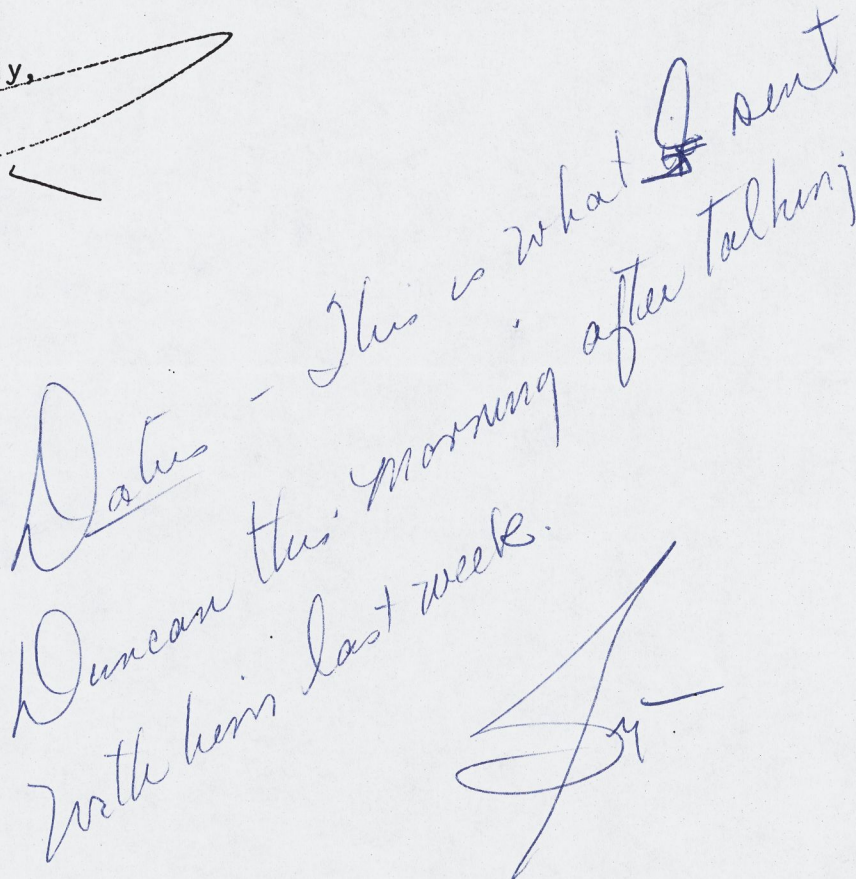 y,
Datus - This is what I sent
Duncan this morning after talking
with him last week.